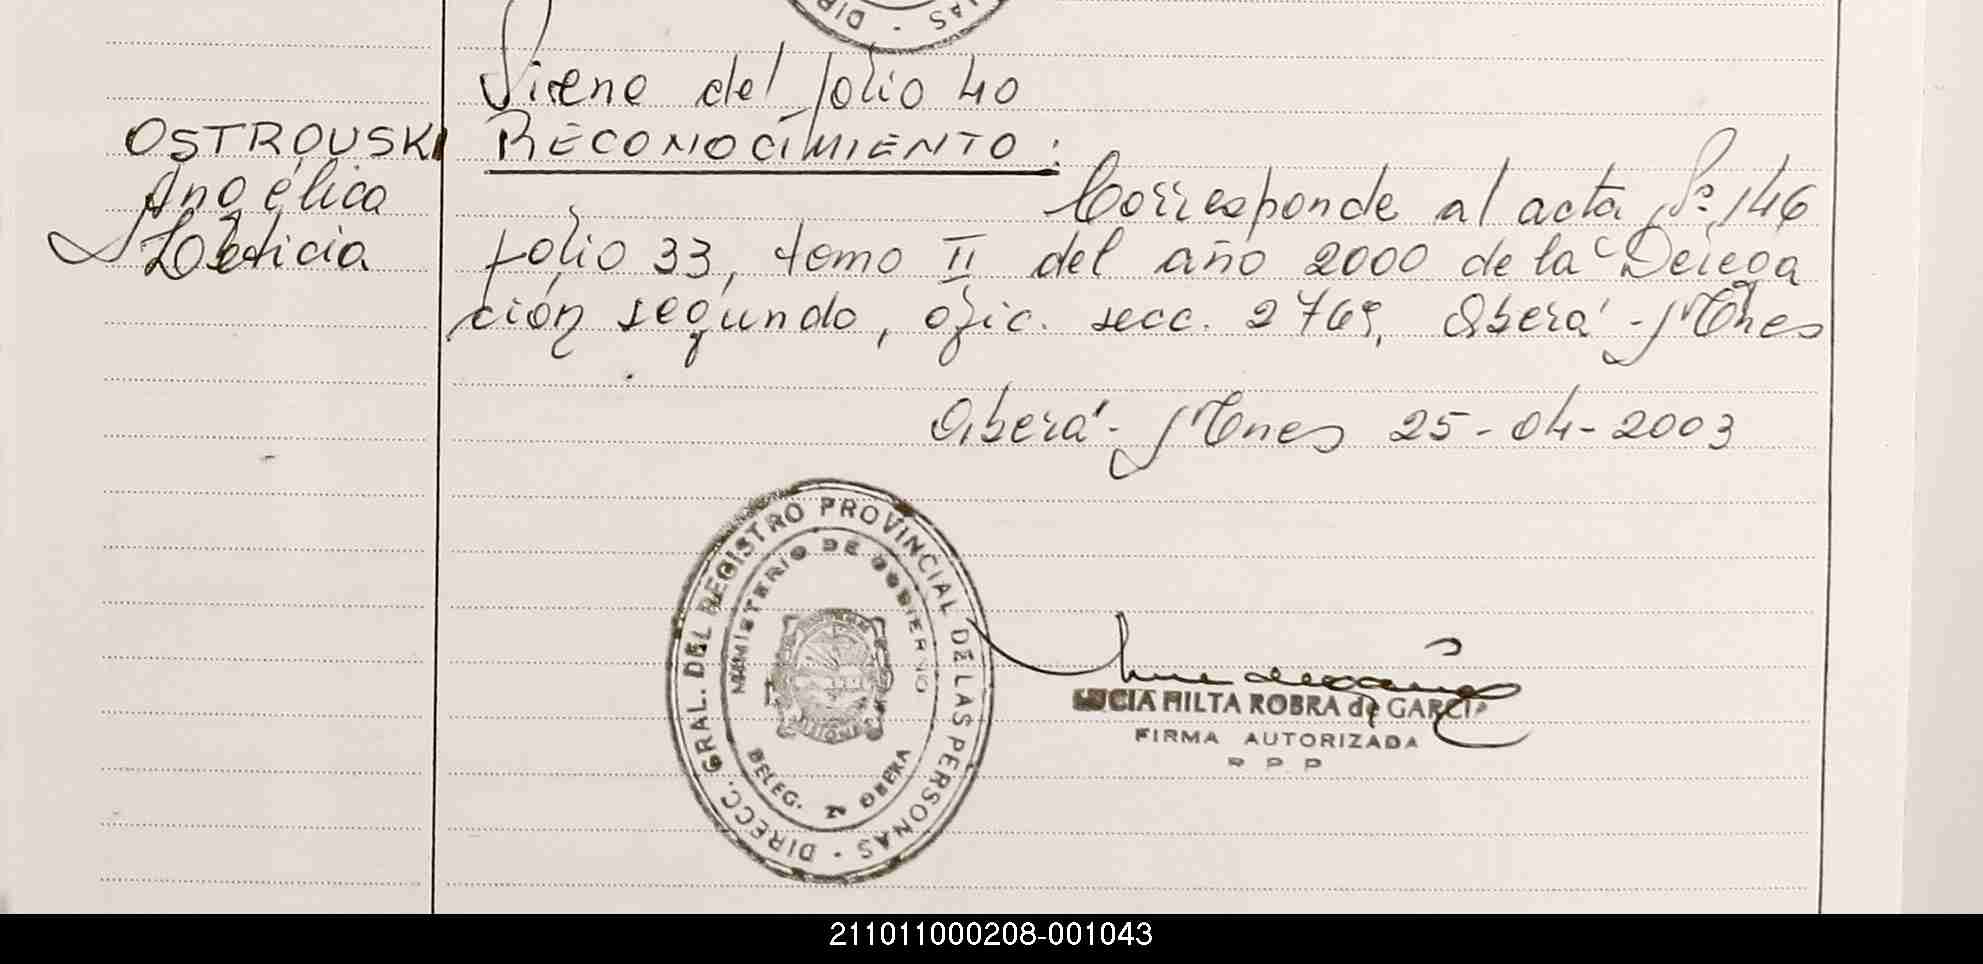 DIR - NAS
Viene del folio 40
OSTROUSKI
Angélica
Leticia
RECONOCIMIENTO:
Corresponde al acta Nº 146
folio 33, tomo II del año 2000 de la Delega
ción segunda, ofic. secc. 2769, Oberá - Mnes
Oberá - Mnes 25-04-2003
DIRECC. GRAL. DEL REGISTRO PROVINCIAL DE LAS PERSONAS -
MINISTERIO DE GOBIERNO
MISIONES
DELEG. 2 OBERA
LUCIA HILTA ROBRA de GARCIA
FIRMA AUTORIZADA
R P P
211011000208-001043